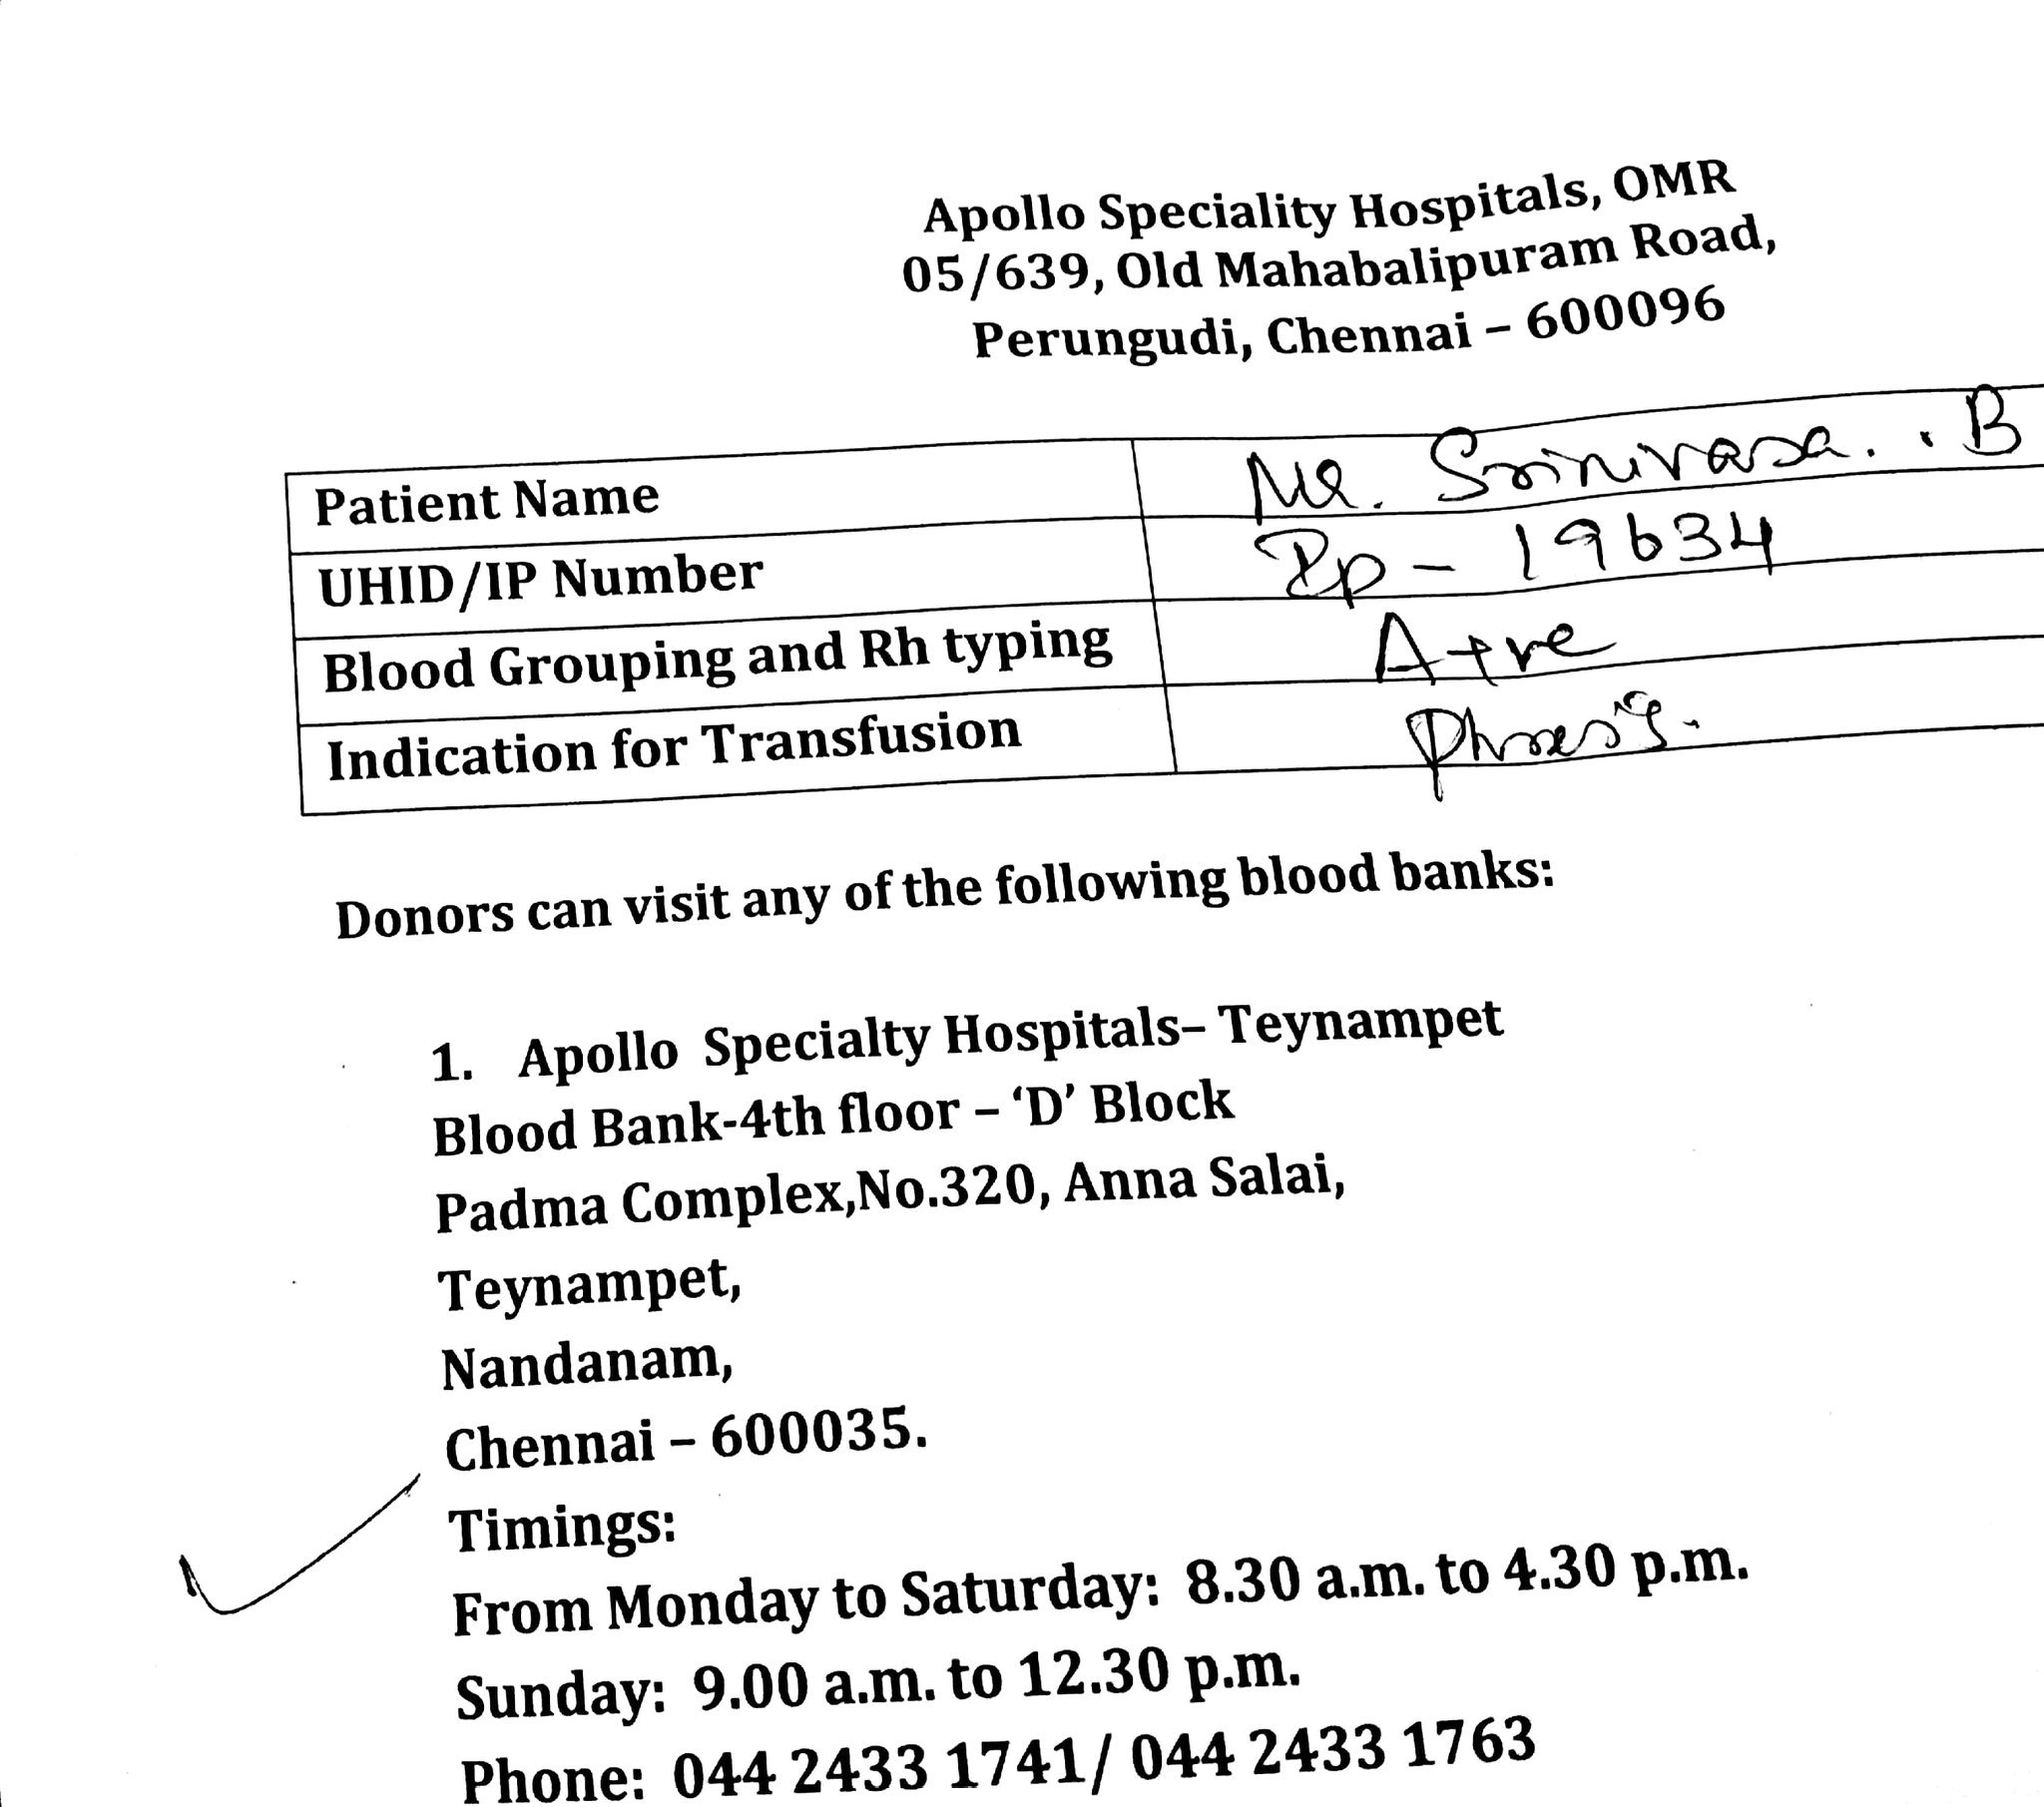 Apollo Speciality Hospitals, OMR
05/639, Old Mahabalipuram Road,
Perungudi, Chennai – 600096
Patient Name Mr. Srinivasa. . B
UHID/IP Number Ip - 19634
Blood Grouping and Rh typing A+ve
Indication for Transfusion
Donors can visit any of the following blood banks:
1. Apollo Specialty Hospitals– Teynampet
Blood Bank-4th floor – ‘D’ Block
Padma Complex,No.320, Anna Salai,
Teynampet,
Nandanam,
Chennai – 600035.
Timings:
From Monday to Saturday: 8.30 a.m. to 4.30 p.m.
Sunday: 9.00 a.m. to 12.30 p.m.
Phone: 044 2433 1741/ 044 2433 1763